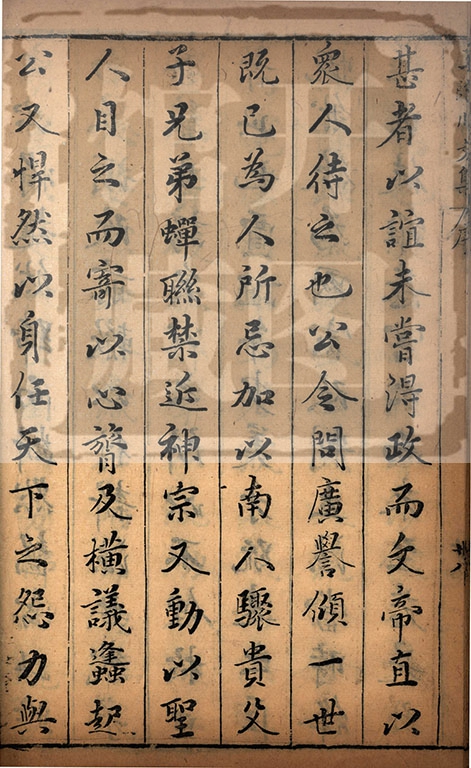 甚者以誼未嘗得政而文帝直以
衆人待之也公令問廣譽傾一世
既已為人所忌加以南人驟貴父
子兄弟蟬聯禁近神宗又動以聖
人目之而寄以心膂及橫議蠭起
公又悍然以身任天下之怨力與